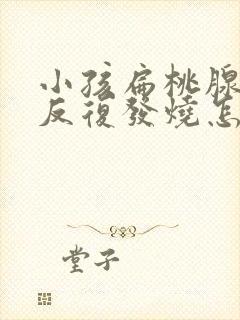 小孩扁桃腺
反復發燒怎
堂子